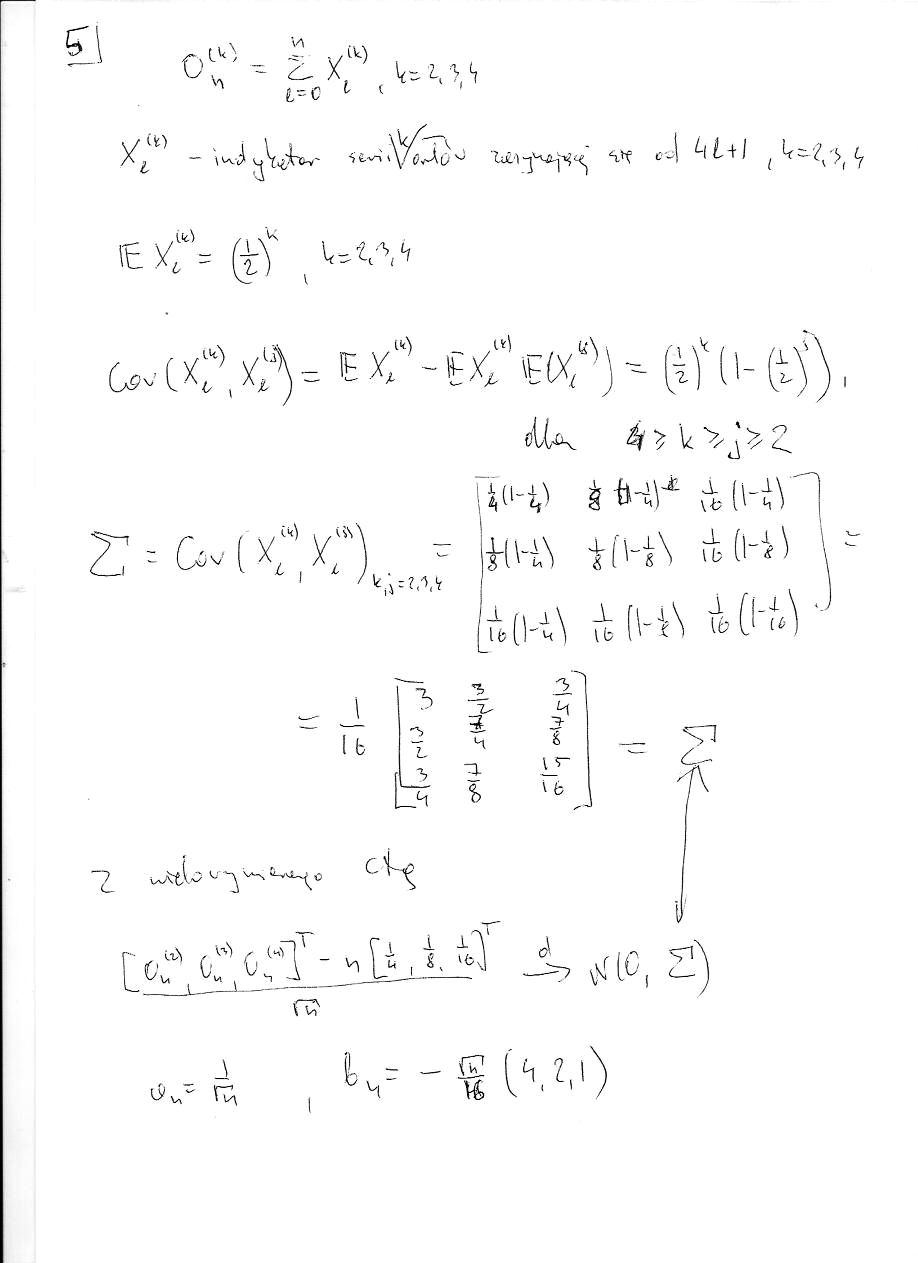 5
O_n^{(k)} = \sum_{l=0}^{n} X_l^{(k)}, k=2,3,4
X_l^{(k)} – indykator serii k orłów zaczynającej się od 4l+1, k=2,3,4
𝔼 X_l^{(k)} = (1/2)^k, k=2,3,4
Cov(X_l^{(k)}, X_l^{(j)}) = 𝔼 X_l^{(k)} – 𝔼 X_l^{(k)} 𝔼(X_l^{(j)}) = (1/2)^k (1–(1/2)^j),
dla 4 ≥ k ≥ j ≥ 2
Σ = Cov(X_l^{(k)}, X_l^{(j)})_{k,j=2,3,4} = [ 1/4(1–1/4) 1/8(1–1/4) 1/16(1–1/4)
1/8(1–1/4) 1/8(1–1/8) 1/16(1–1/8)
1/16(1–1/4) 1/16(1–1/8) 1/16(1–1/16) ] =
= 1/16 [ 3 3/2 3/4
3/2 7/4 7/8
3/4 7/8 15/16 ] = Σ
Z wielowymiarowego CTG
([O_n^{(2)}, O_n^{(3)}, O_n^{(4)}]^T – n[1/4, 1/8, 1/16]^T) / √n →^d N(0, Σ)
a_n = 1/√n, b_n = – √n/16 (4,2,1)